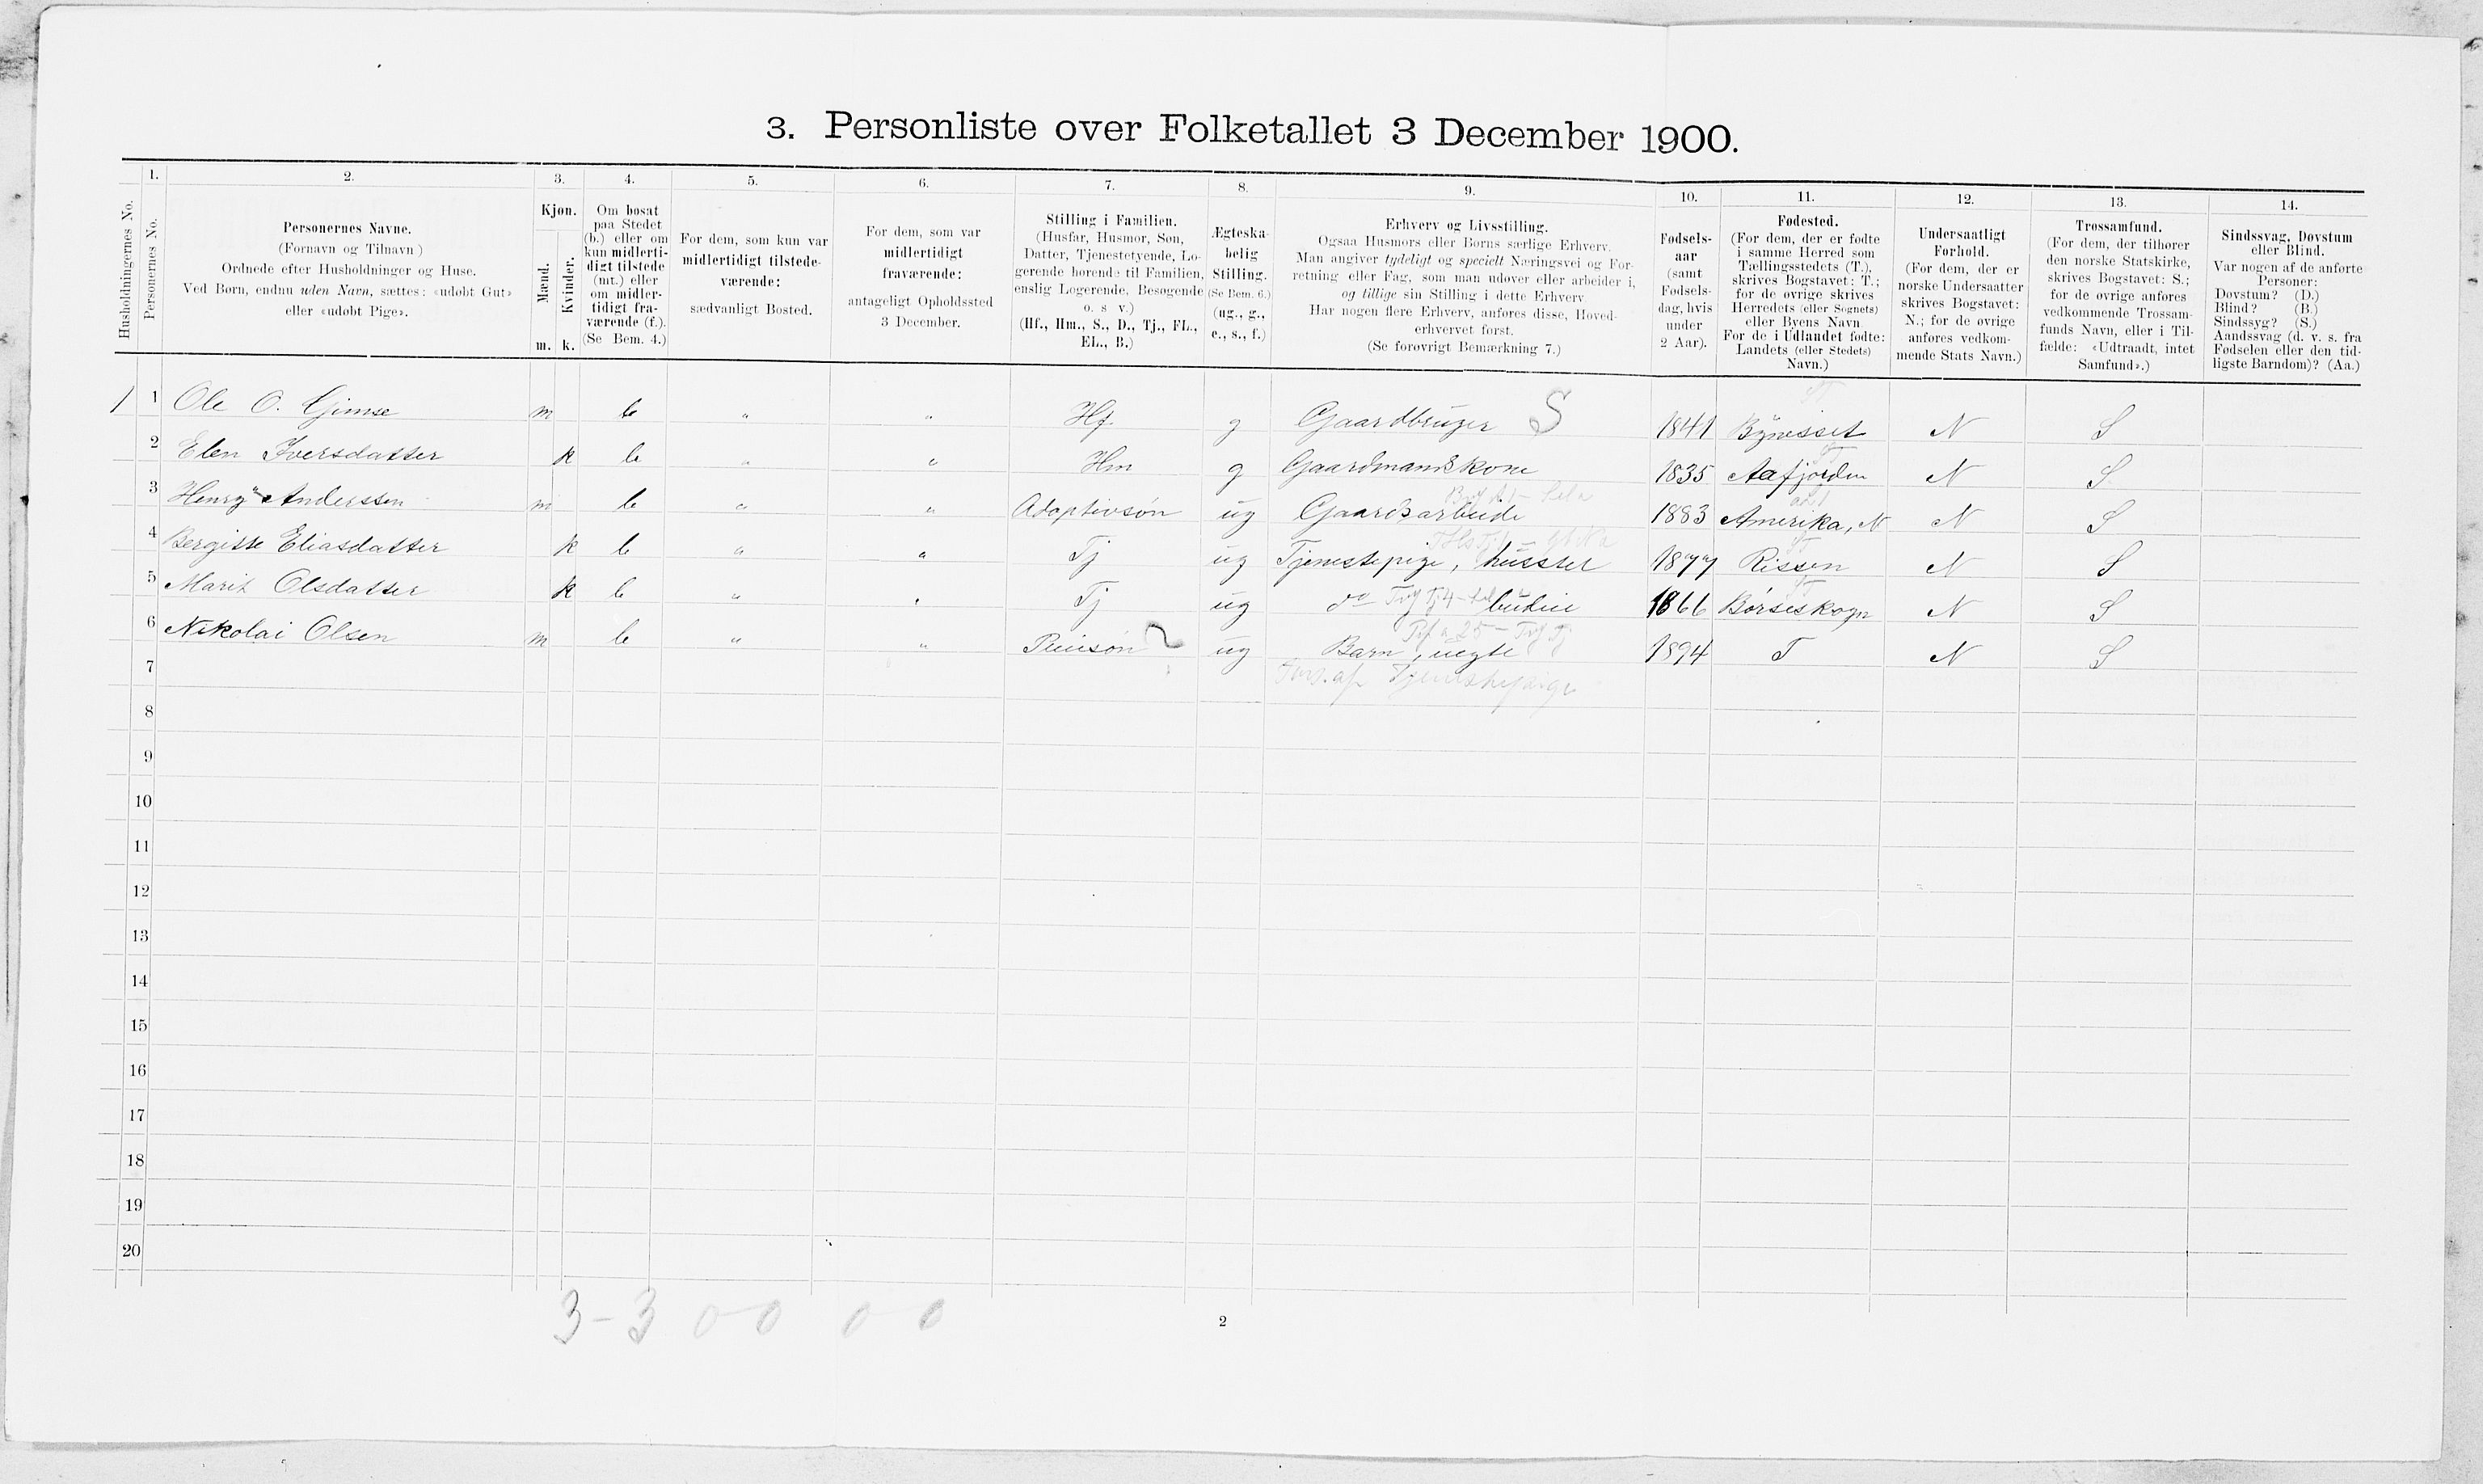 3. Personliste over Folketallet 3 December 1900.
Husholdningernes No.
1. Personernes No.
2. Personernes Navne.
(Fornavn og Tilnavn)
Ordnede efter Husholdninger og Huse.
Ved Børn, endnu uden Navn, sættes: «udøbt Gut»
eller «udøbt Pige».
3. Kjøn.
Mænd. Kvinder.
m. k.
4. Om bosat
paa Stedet
(b.) eller om
kun midlerti-
digt tilstede
(mt.) eller
om midler-
tidigt fra-
værende (f.).
(Se Bem. 4.)
5. For dem, som kun var
midlertidigt tilstede-
værende:
sædvanligt Bosted.
6. For dem, som var
midlertidigt
fraværende:
antageligt Opholdssted
3 December.
7. Stilling i Familien.
(Husfar, Husmor, Søn,
Datter, Tjenestetyende, Lo-
gerende hørende til Familien,
enslig Logerende, Besøgende
o. s v.)
(Hf., Hm., S., D., Tj., FL.,
EL., B.)
8. Ægteska-
belig
Stilling.
(Se Bem. 6.)
(ug., g.,
e., s., f.)
9. Erhverv og Livsstilling.
Ogsaa Husmors eller Børns særlige Erhverv.
Man angiver tydeligt og specielt Næringsvei og For-
retning eller Fag, som man udøver eller arbeider i,
og tillige sin Stilling i dette Erhverv
Har nogen flere Erhverv, anføres disse, Hoved-
erhvervet først.
(Se forøvrigt Bemærkning 7.)
10. Fødsels-
aar
(samt
Fødsels-
dag, hvis
under
2 Aar).
11. Fødested.
(For dem, der er fødte
i samme Herred som
Tællingsstedets (T.),
skrives Bogstavet: T.;
for de øvrige skrives
Herredets (eller Sognets)
eller Byens Navn
For de i Udlandet fødte:
Landets (eller Stedets)
Navn.)
12. Undersaatligt
Forhold.
(For dem, der er
norske Undersaatter
skrives Bogstavet:
N.; for de øvrige
anføres vedkom-
mende Stats Navn.)
13. Trossamfund.
(For dem, der tilhører
den norske Statskirke,
skrives Bogstavet: S.;
for de øvrige anføres
vedkommende Trossam-
funds Navn, eller i Til-
fælde: «Udtraadt, intet
Samfund».)
14. Sindssvag, Døvstum
eller Blind.
Var nogen af de anførte
Personer:
Døvstum? (D.)
Blind? (B.)
Sindssyg? (S.)
Aandssvag (d. v. s. fra
Fødselen eller den tid-
ligste Barndom)? (Aa.)
1 1 Ole O. Gimse m b " " Hf. g Gaardbruger S 1841 Bynesset N S
2 Elen Iversdatter k b " " Hm g Gaardmandskone 1835 Aafjorden N S
3 Henry Anderssen m b " " Adoptivsøn ug Gaardsarbeide 1883 Amerika, N N S
4 Bergitte Eliasdatter k b " " Tj ug Tjenestepige, husstel 1877 Rissen N S
5 Marit Olsdatter k b " " Tj ug do budeie 1866 Børseskogn N S
6 Nikolai Olsen m b " " Pleiesøn ? ug Barn, uegte 1894 T N S
Fors. af Tjenestepige
7
8
9
10
11
12
13
14
15
16
17
18
19
20
3 - 3 0 - 0 0 - 0
2